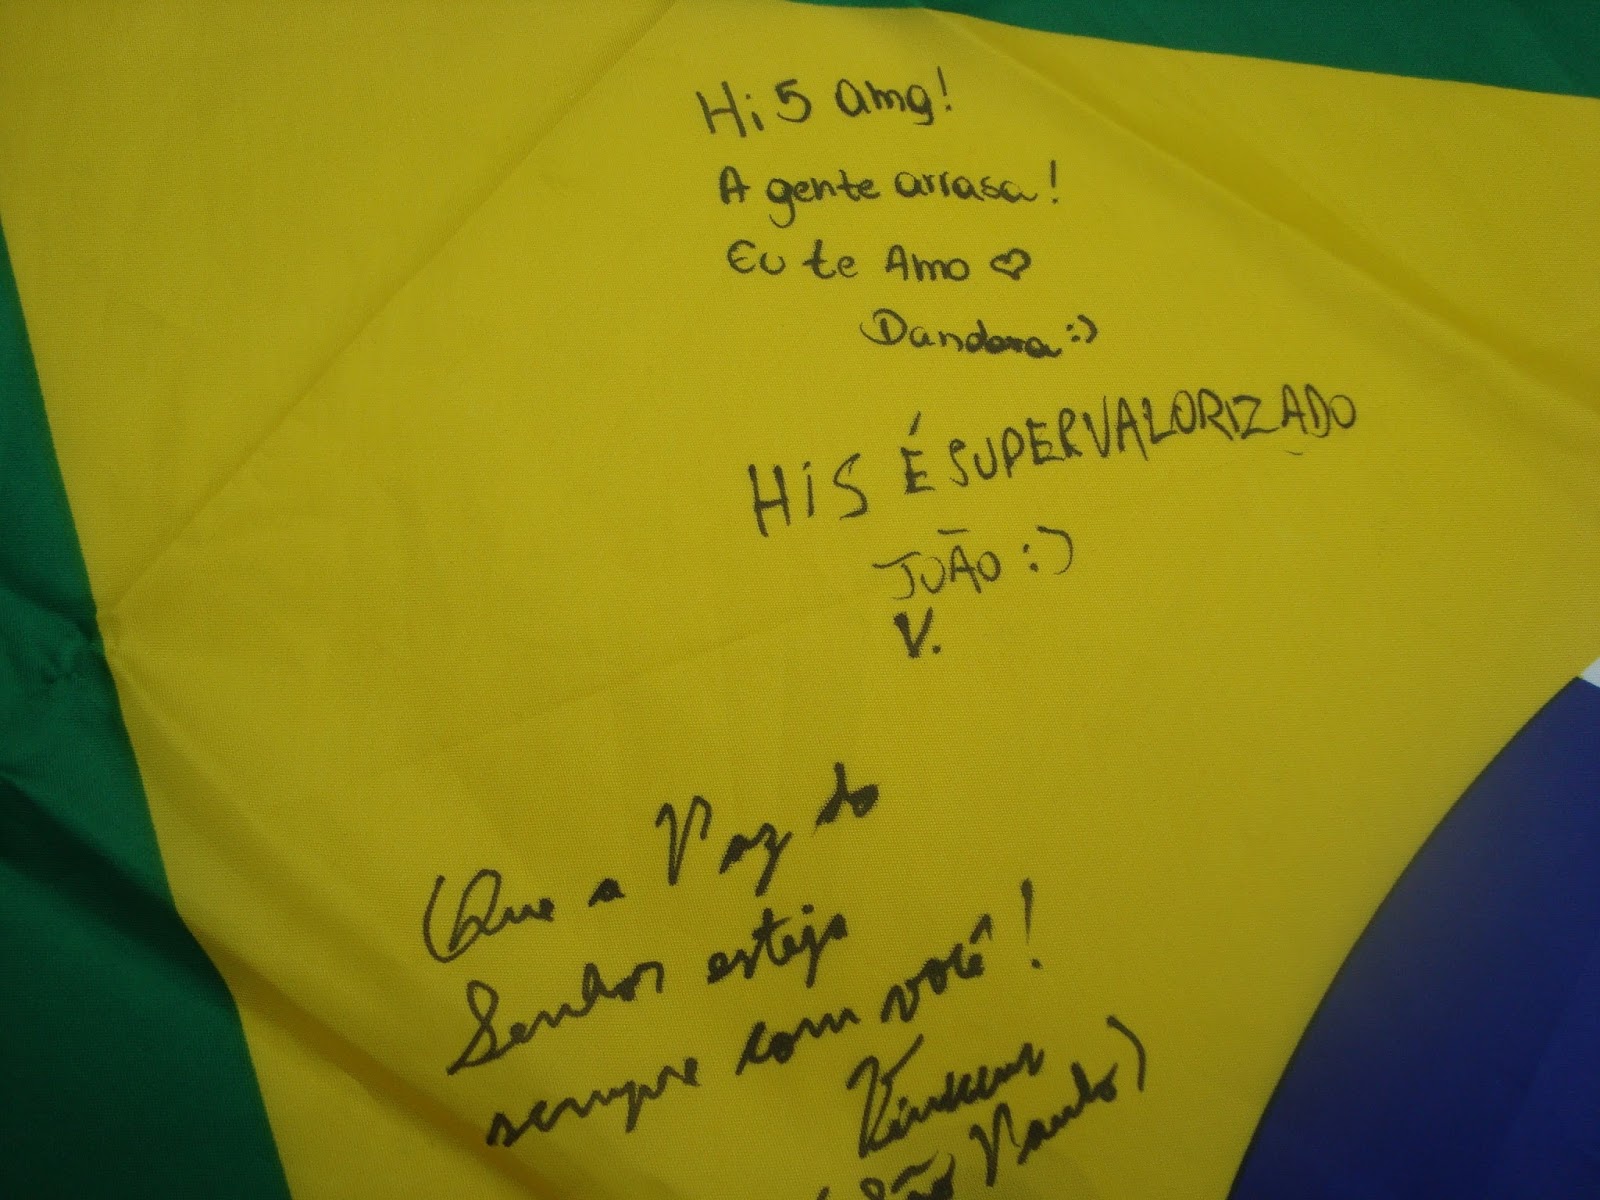 Hi 5 amg!
A gente arrasa!
Eu te Amo ♡
Dandara :)
Hi5 É SUPERVALORIZADO
JOÃO :)
V.
Que a Paz do
Senhor esteja
sempre com você!
(São Paulo)